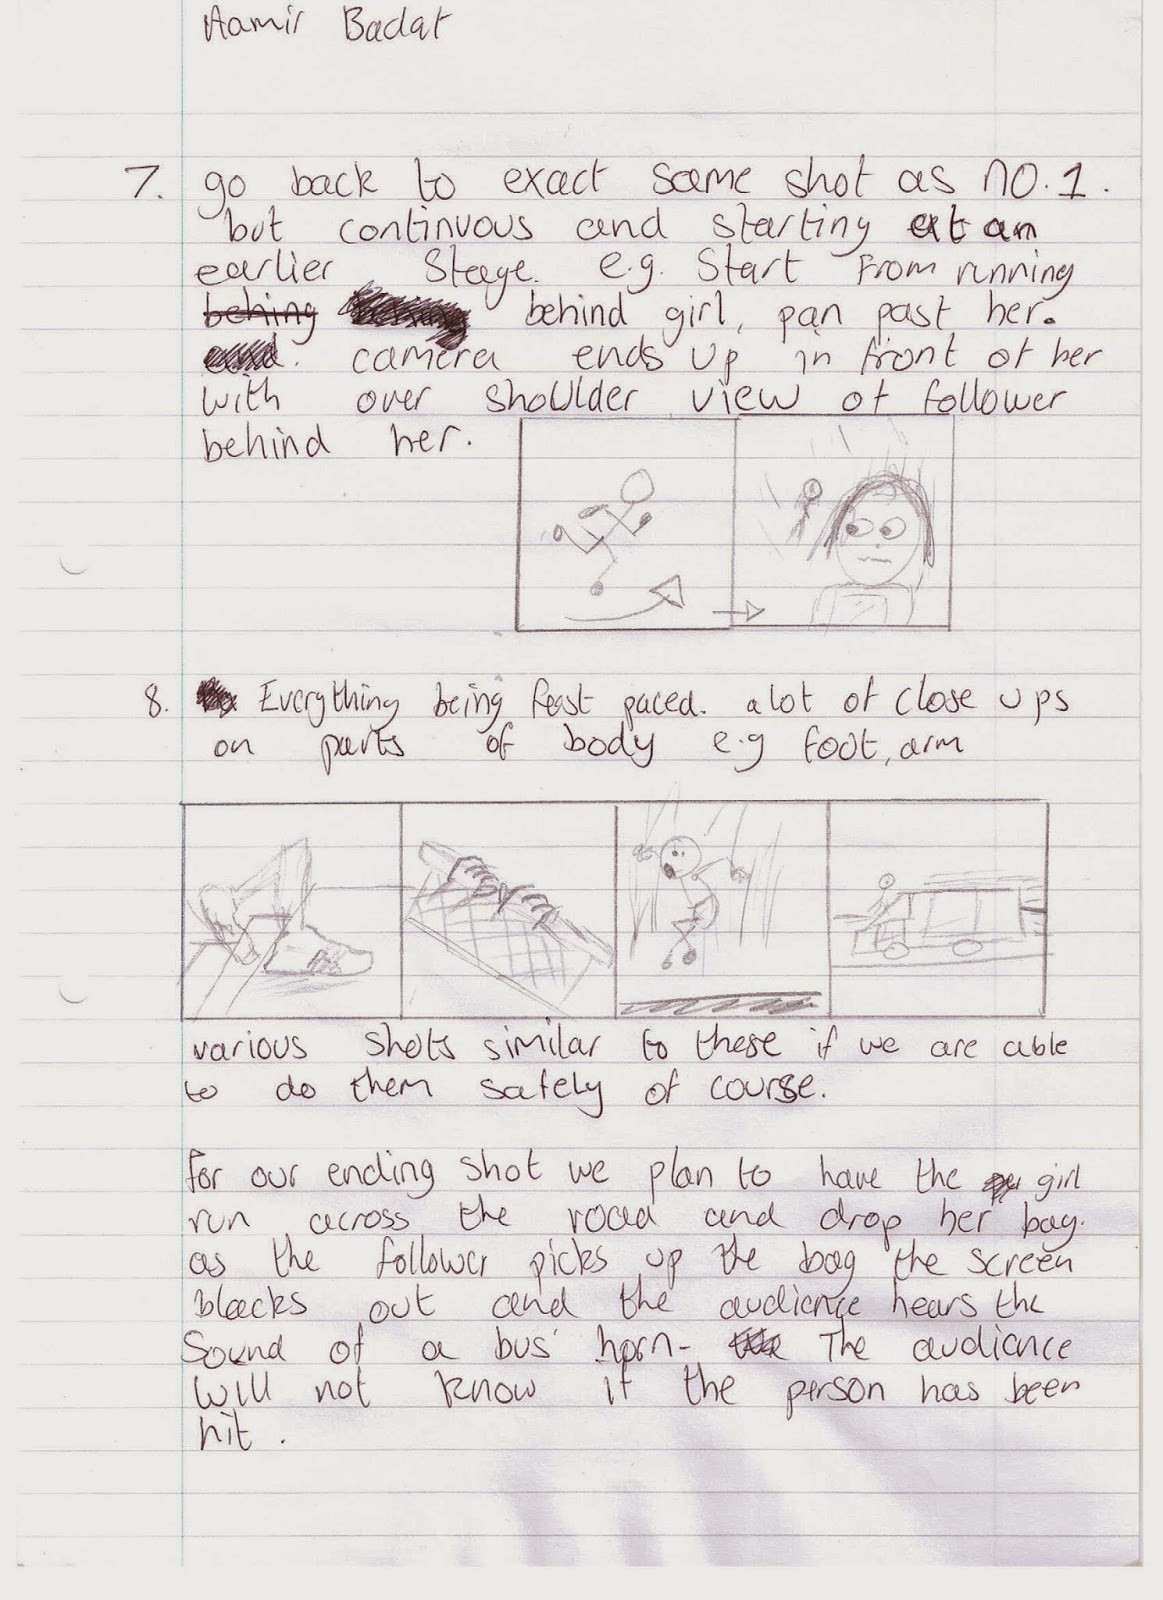 Aamir Badat
7. go back to exact same shot as no.1.
but continuous and starting at an
earlier stage. e.g. start from running
behing behind girl, pan past her.
and. camera ends up in front of her
with over shoulder view of follower
behind her.
8. Everything being fast paced. a lot of close ups
on parts of body e.g foot, arm
various shots similar to these if we are able
to do them safely of course.
for our ending shot we plan to have the girl
run across the road and drop her bag.
as the follower picks up the bag the screen
blacks out and the audience hears the
sound of a bus' horn- The audience
will not know if the person has been
hit.